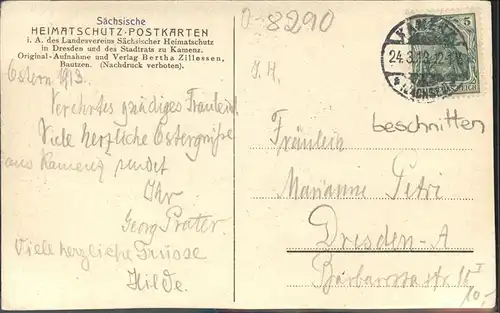 Sächsische
HEIMATSCHUTZ-POSTKARTEN
i. A. des Landesvereins Sächsischer Heimatschutz
in Dresden und des Stadtrats zu Kamenz.
Original-Aufnahme und Verlag Bertha Zillessen,
Bautzen. (Nachdruck verboten).
Ostern 1913.
Verehrtes gnädiges Fräulein!
Viele herzliche Ostergrüße
aus Kamenz sendet
Ihr
Georg Prater.
Viele herzliche Grüsse
Hilde.
0-8290
5
KAMENZ
24.3.13. 12-1 N.
(SACHSEN)
REICH
beschnitten
Fräulein
Marianne Petri
Dresden-A
10,-